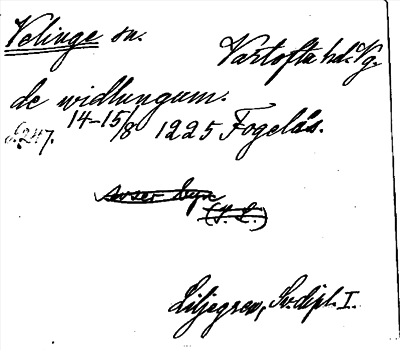 Velinge sn.
Vartofta hd. Vg.
de widlungum.
S. 247. 14-15/8 1225 Fogelås.
avser byn
(J. L.)
Liljegren, Sv. dipl. I.